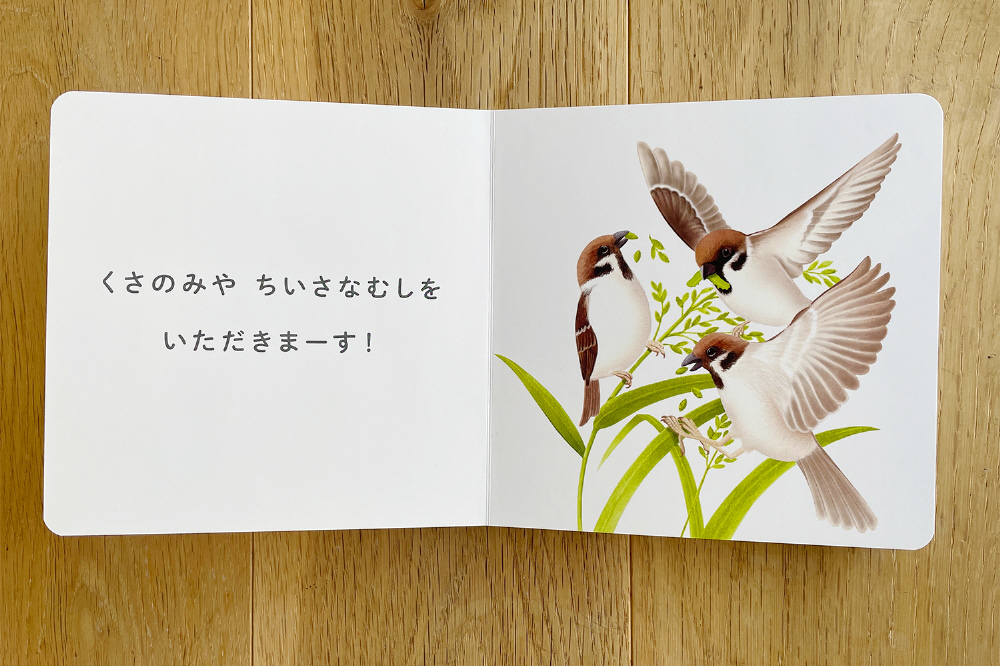 くさのみや ちいさなむしを
いただきまーす！